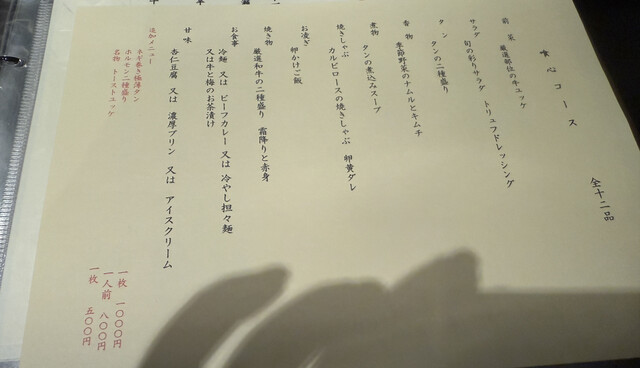 喰心コース　全十二品
前菜　厳選部位の牛ユッケ
サラダ　旬の彩りサラダ　トリュフドレッシング
タン　タンの二種盛り
香物　季節野菜のナムルとキムチ
煮物　タンの煮込みスープ
焼きしゃぶ　カルビロースの焼きしゃぶ　卵黄ダレ
お凌ぎ　卵かけご飯
焼き物　厳選和牛の二種盛り　霜降りと赤身
お食事　冷麺　又は　ビーフカレー　又は　冷やし担々麺
又は牛と梅のお茶漬け
甘味　杏仁豆腐　又は　濃厚プリン　又は　アイスクリーム
追加メニュー
ネギ巻き梅薄タン　一枚　一〇〇〇円
ホルモン二種盛り　一人前　八〇〇円
名物　トーストユッケ　一枚　五〇〇円